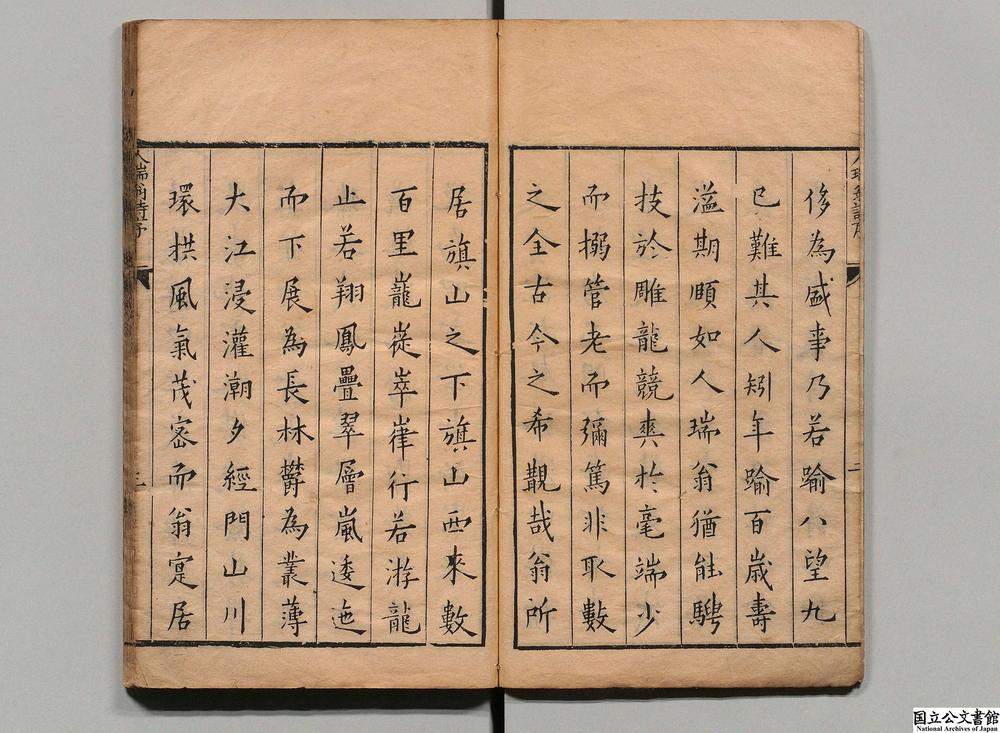 侈為盛事乃若踰八望九
已難其人矧年踰百歲壽
溢期頤如人瑞翁猶能騁
技於雕龍競爽於毫端少
而搦管老而彌篤非取數
之全古今之希覯哉翁所
居旗山之下旗山西來數
百里巃嵸崒嵂行若游龍
止若翔鳳疊翠層嵐逶迤
而下展為長林欝為叢薄
大江浸灌潮夕經門山川
環拱風氣茂密而翁寔居
人瑞翁詩序
三
国立公文書館
National Archives of Japan